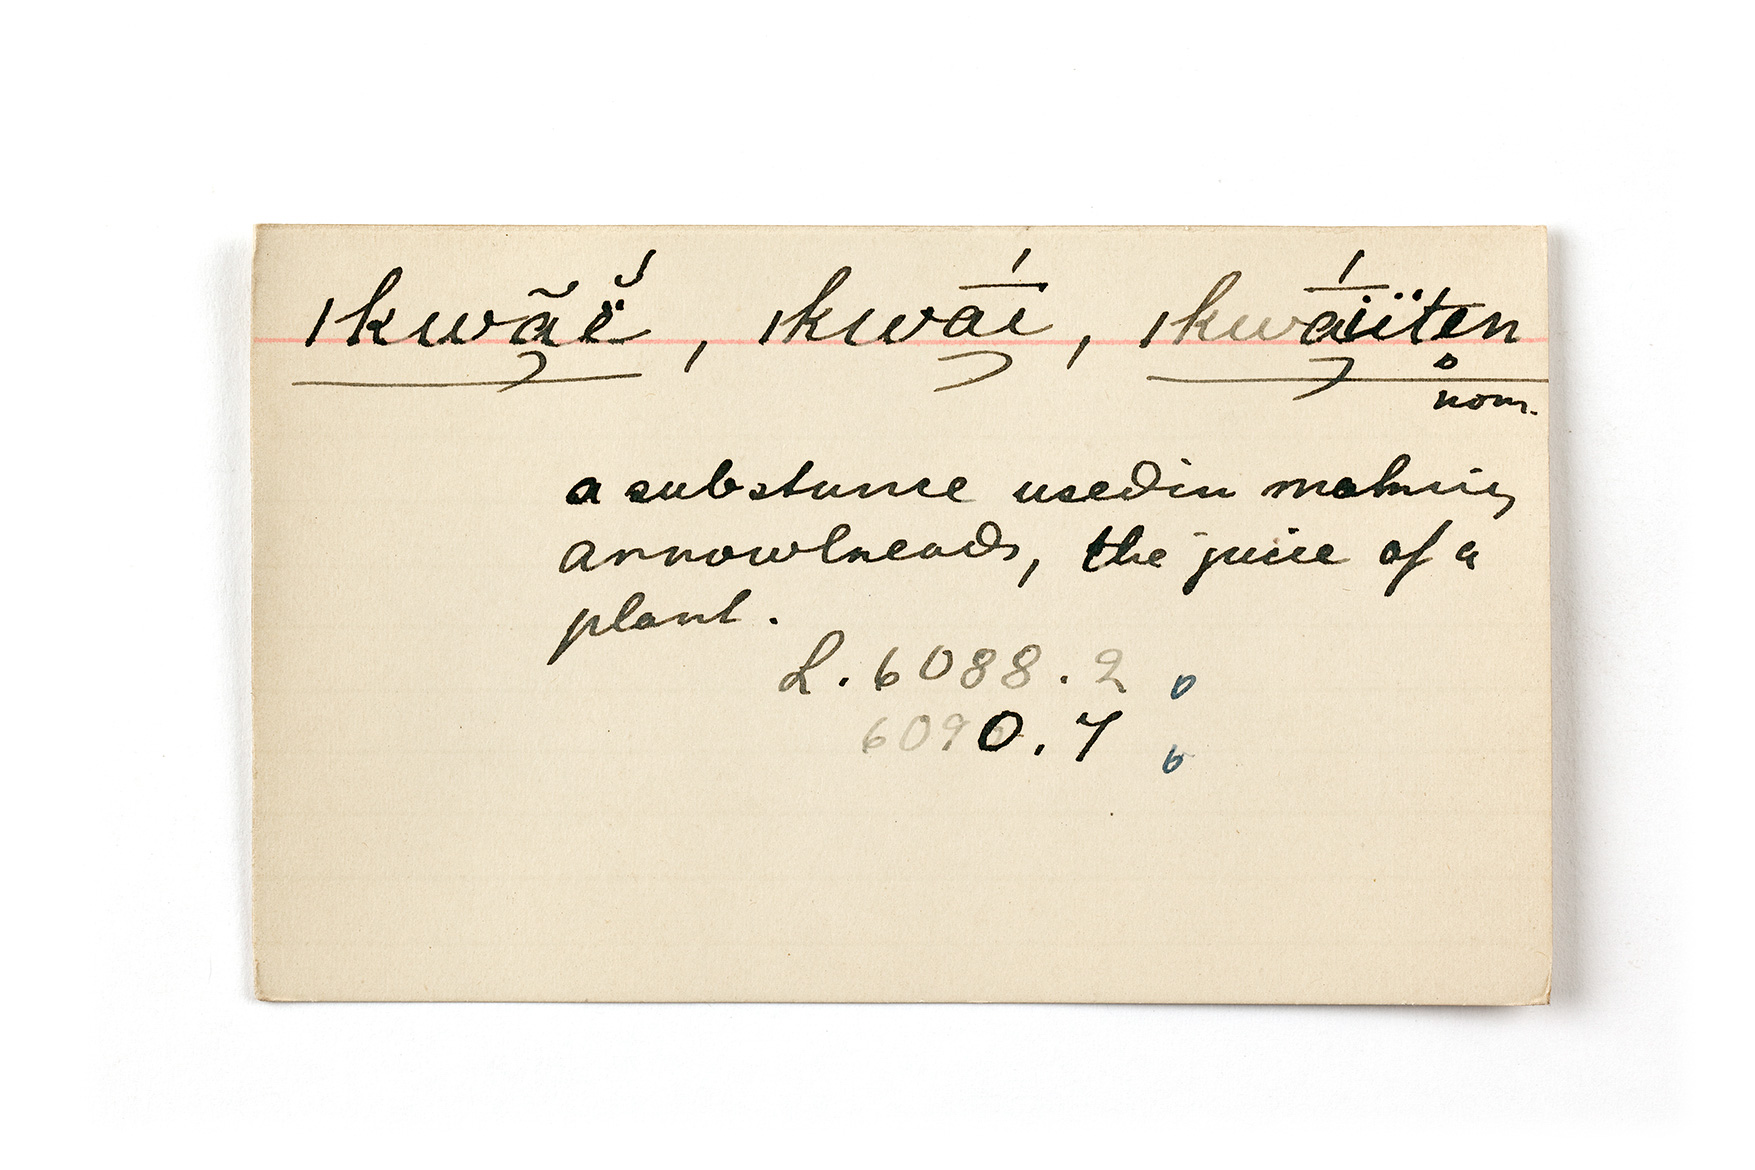 ıkwãĕ̈, ıkwāı, ıkwāïïten
nom.
a substance used in making
arrowheads, the juice of a
plant.
L. 6088.2
6090.7